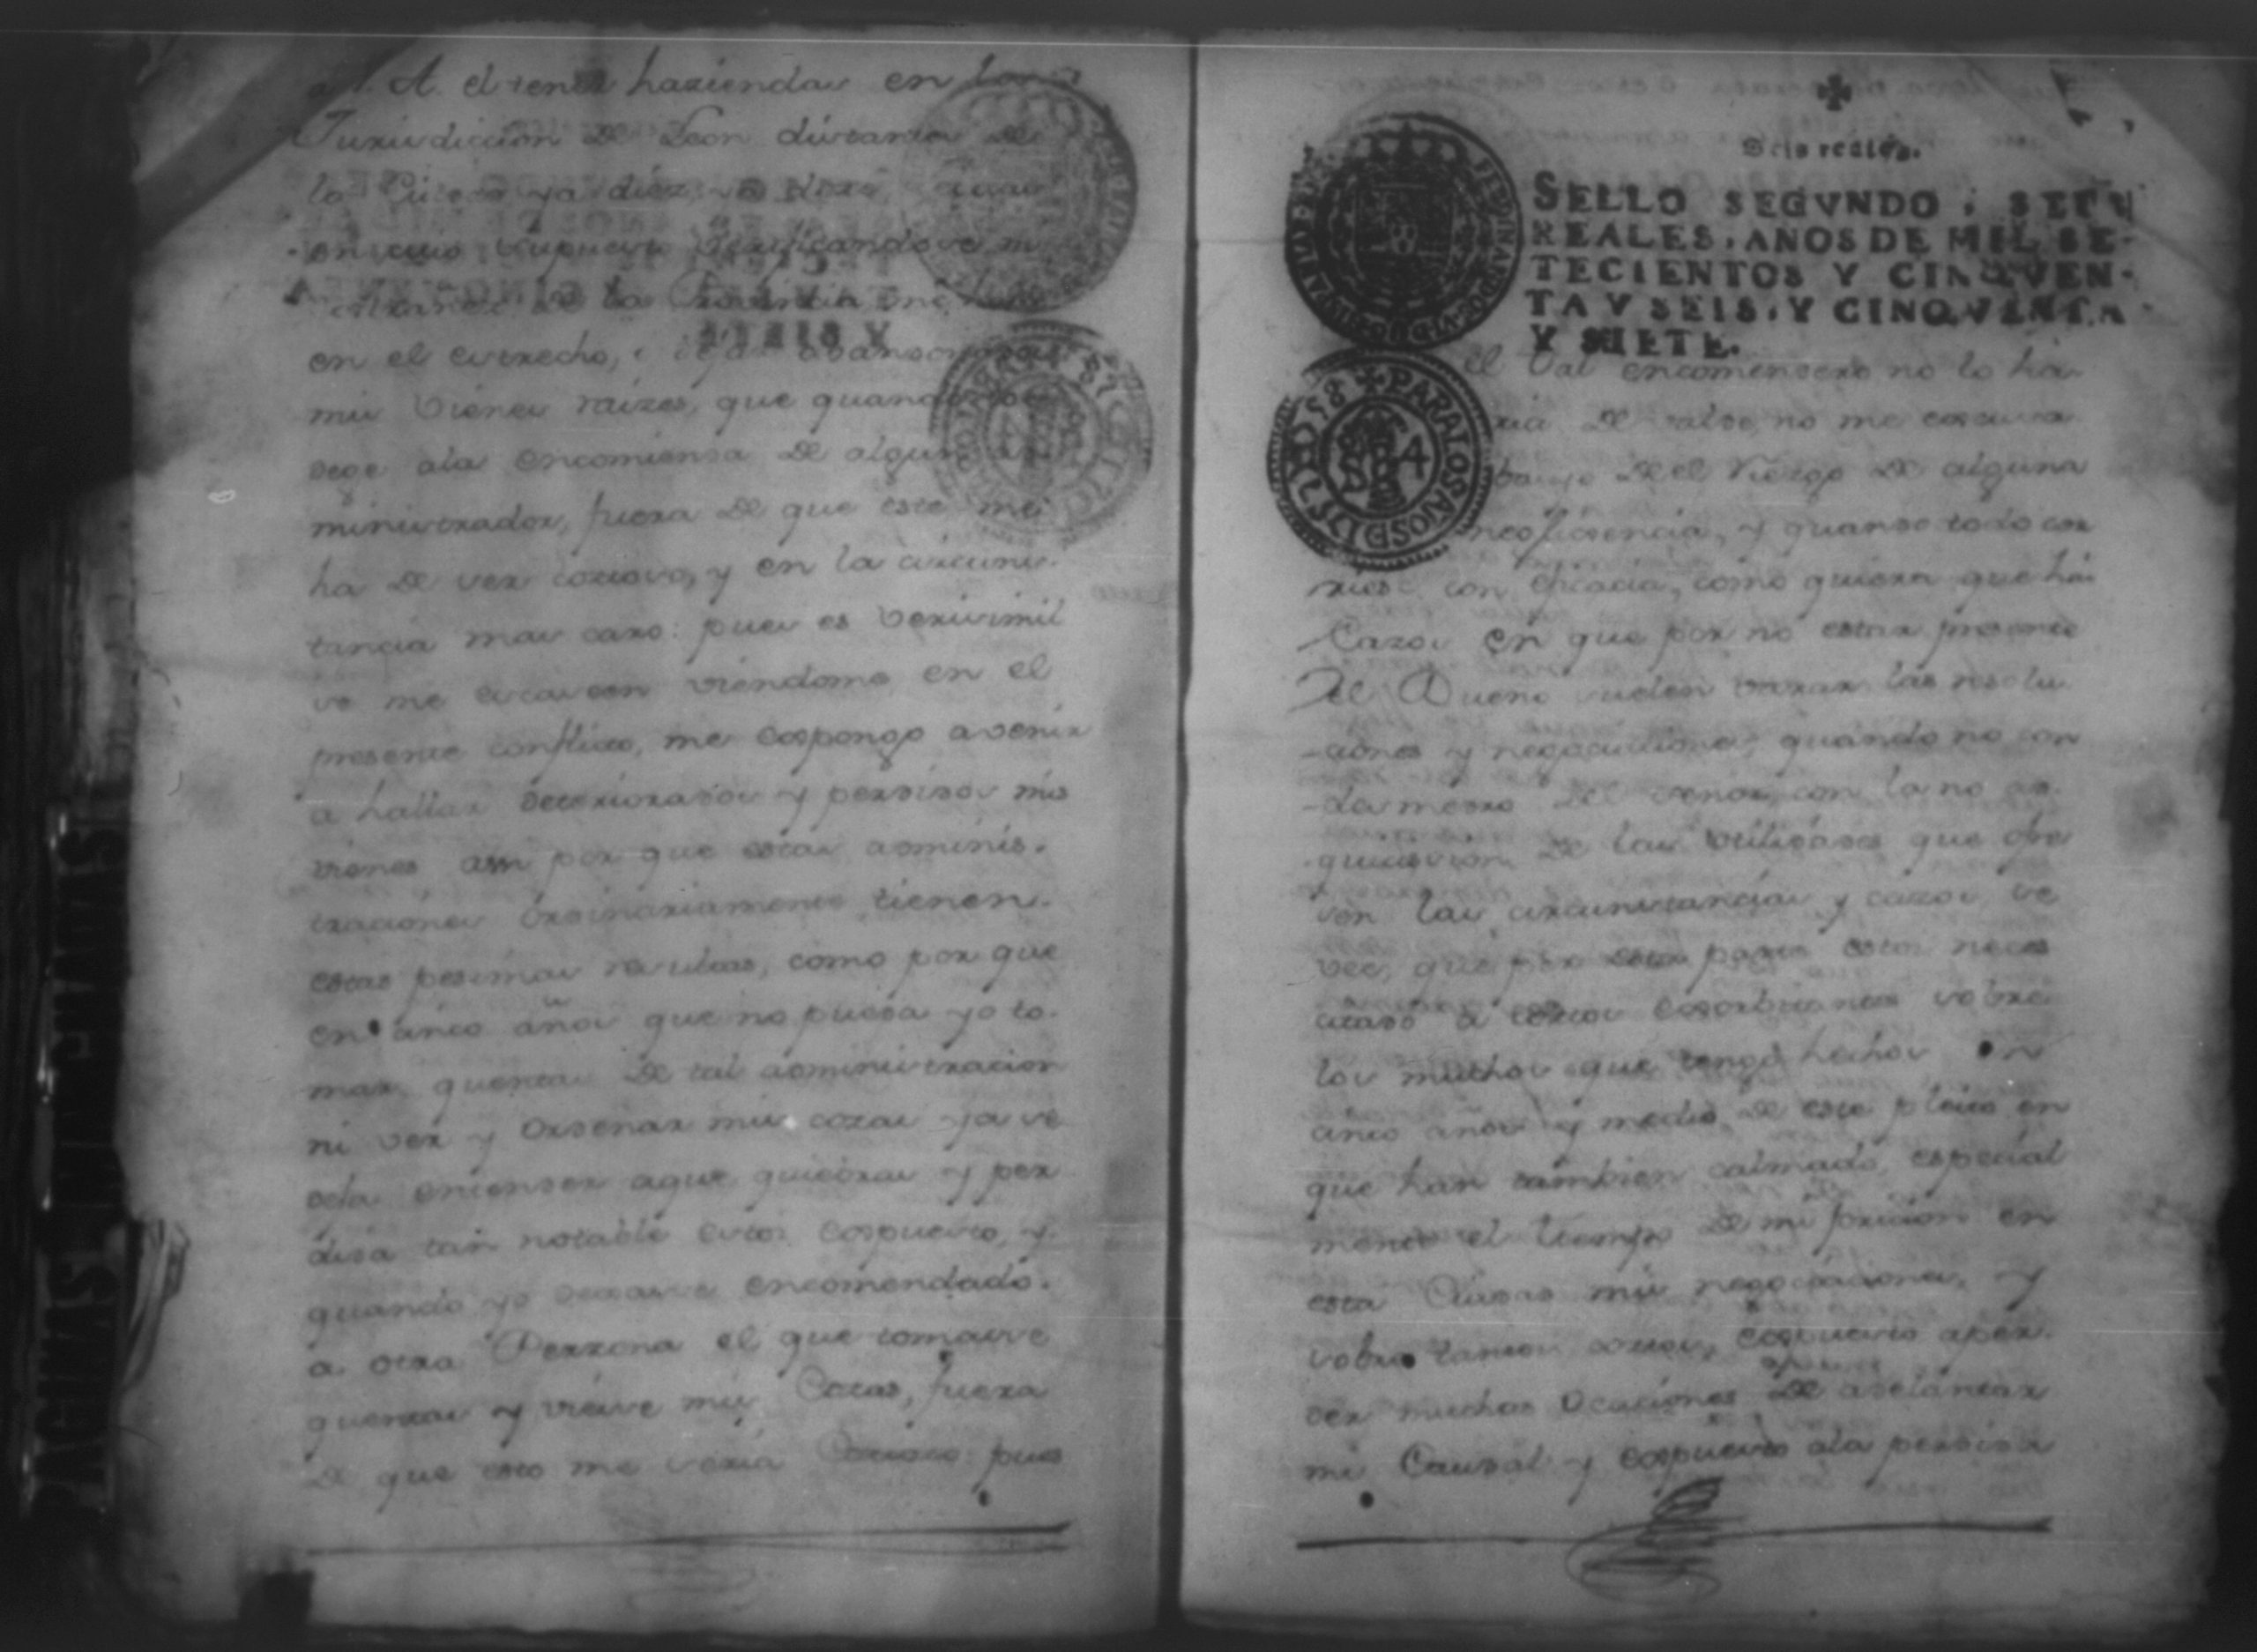 A. el tener haziendas en la
Jurisdiccion de Leon distantes de
la Puebla ya diez, ya doze,
en cuio supuesto verificandose mi
extrañez de la Provincia me
en el estrecho, abandonar
mis vienes raizes, que quando
dege ala encomienda de algun ad
ministrador, fuera de que este me
ha de ser costoso, y en la circuns-
tancia mas caro: pues es verisimil
se me escaseen viendome en el
presente conflicto, me expongo avenir
a hallar deteriorados y perdidos mis
vienes assi por que estas adminis-
traciones ordinariamente tienen
estas pesimas resultas, como por que
en cinco años que no pueda yo to-
mar quentas de tal administracion
ni ver y ordenar mis cozas ya se
deja entender aque quiebras y per
dida tan notable estoi expuesto, y
quando yo dexasse encomendado
a otra Perzona el que tomasse
quentas y viesse mis Cozas, fuera
de que esto me seria Costoso pues
Seis reales.
SELLO SEGVNDO, SEIS
REALES, AÑOS DE MIL SE-
TECIENTOS Y CINQVEN-
TA Y SEIS, Y CINQVENTA
Y SIETE.
FERDINANDUS VI D G
PARA LOS AÑOS DE 1757 Y 1758
el tal encomendero no lo ha-
ria de valde, no me escusa
bamo de el riezgo de alguna
negligencia, y quando todo cor
riese con eficacia, como quiera que hai
Cazos en que por no estar presente
el Dueño suelen variar las resolu
-ciones y negociaciones, quando no con
-la mesro del Señor, con la no ad-
quisision de las utilidades que ofre
sen las circunstancias y cazos, se
vee, que por esta parte estoi neces
citado a costos exorbitantes sobre
los muchos que tengo hechos en
cinco años y medio de este pleito en
que han tambien calmado, especial
mente el tiempo de mi pricion en
esta Ciudad mis negociaciones, y
sobre tantos costos, expuesto aper-
der muchas ocaciones de adelantar
mi Caudal y expuesto ala perdida